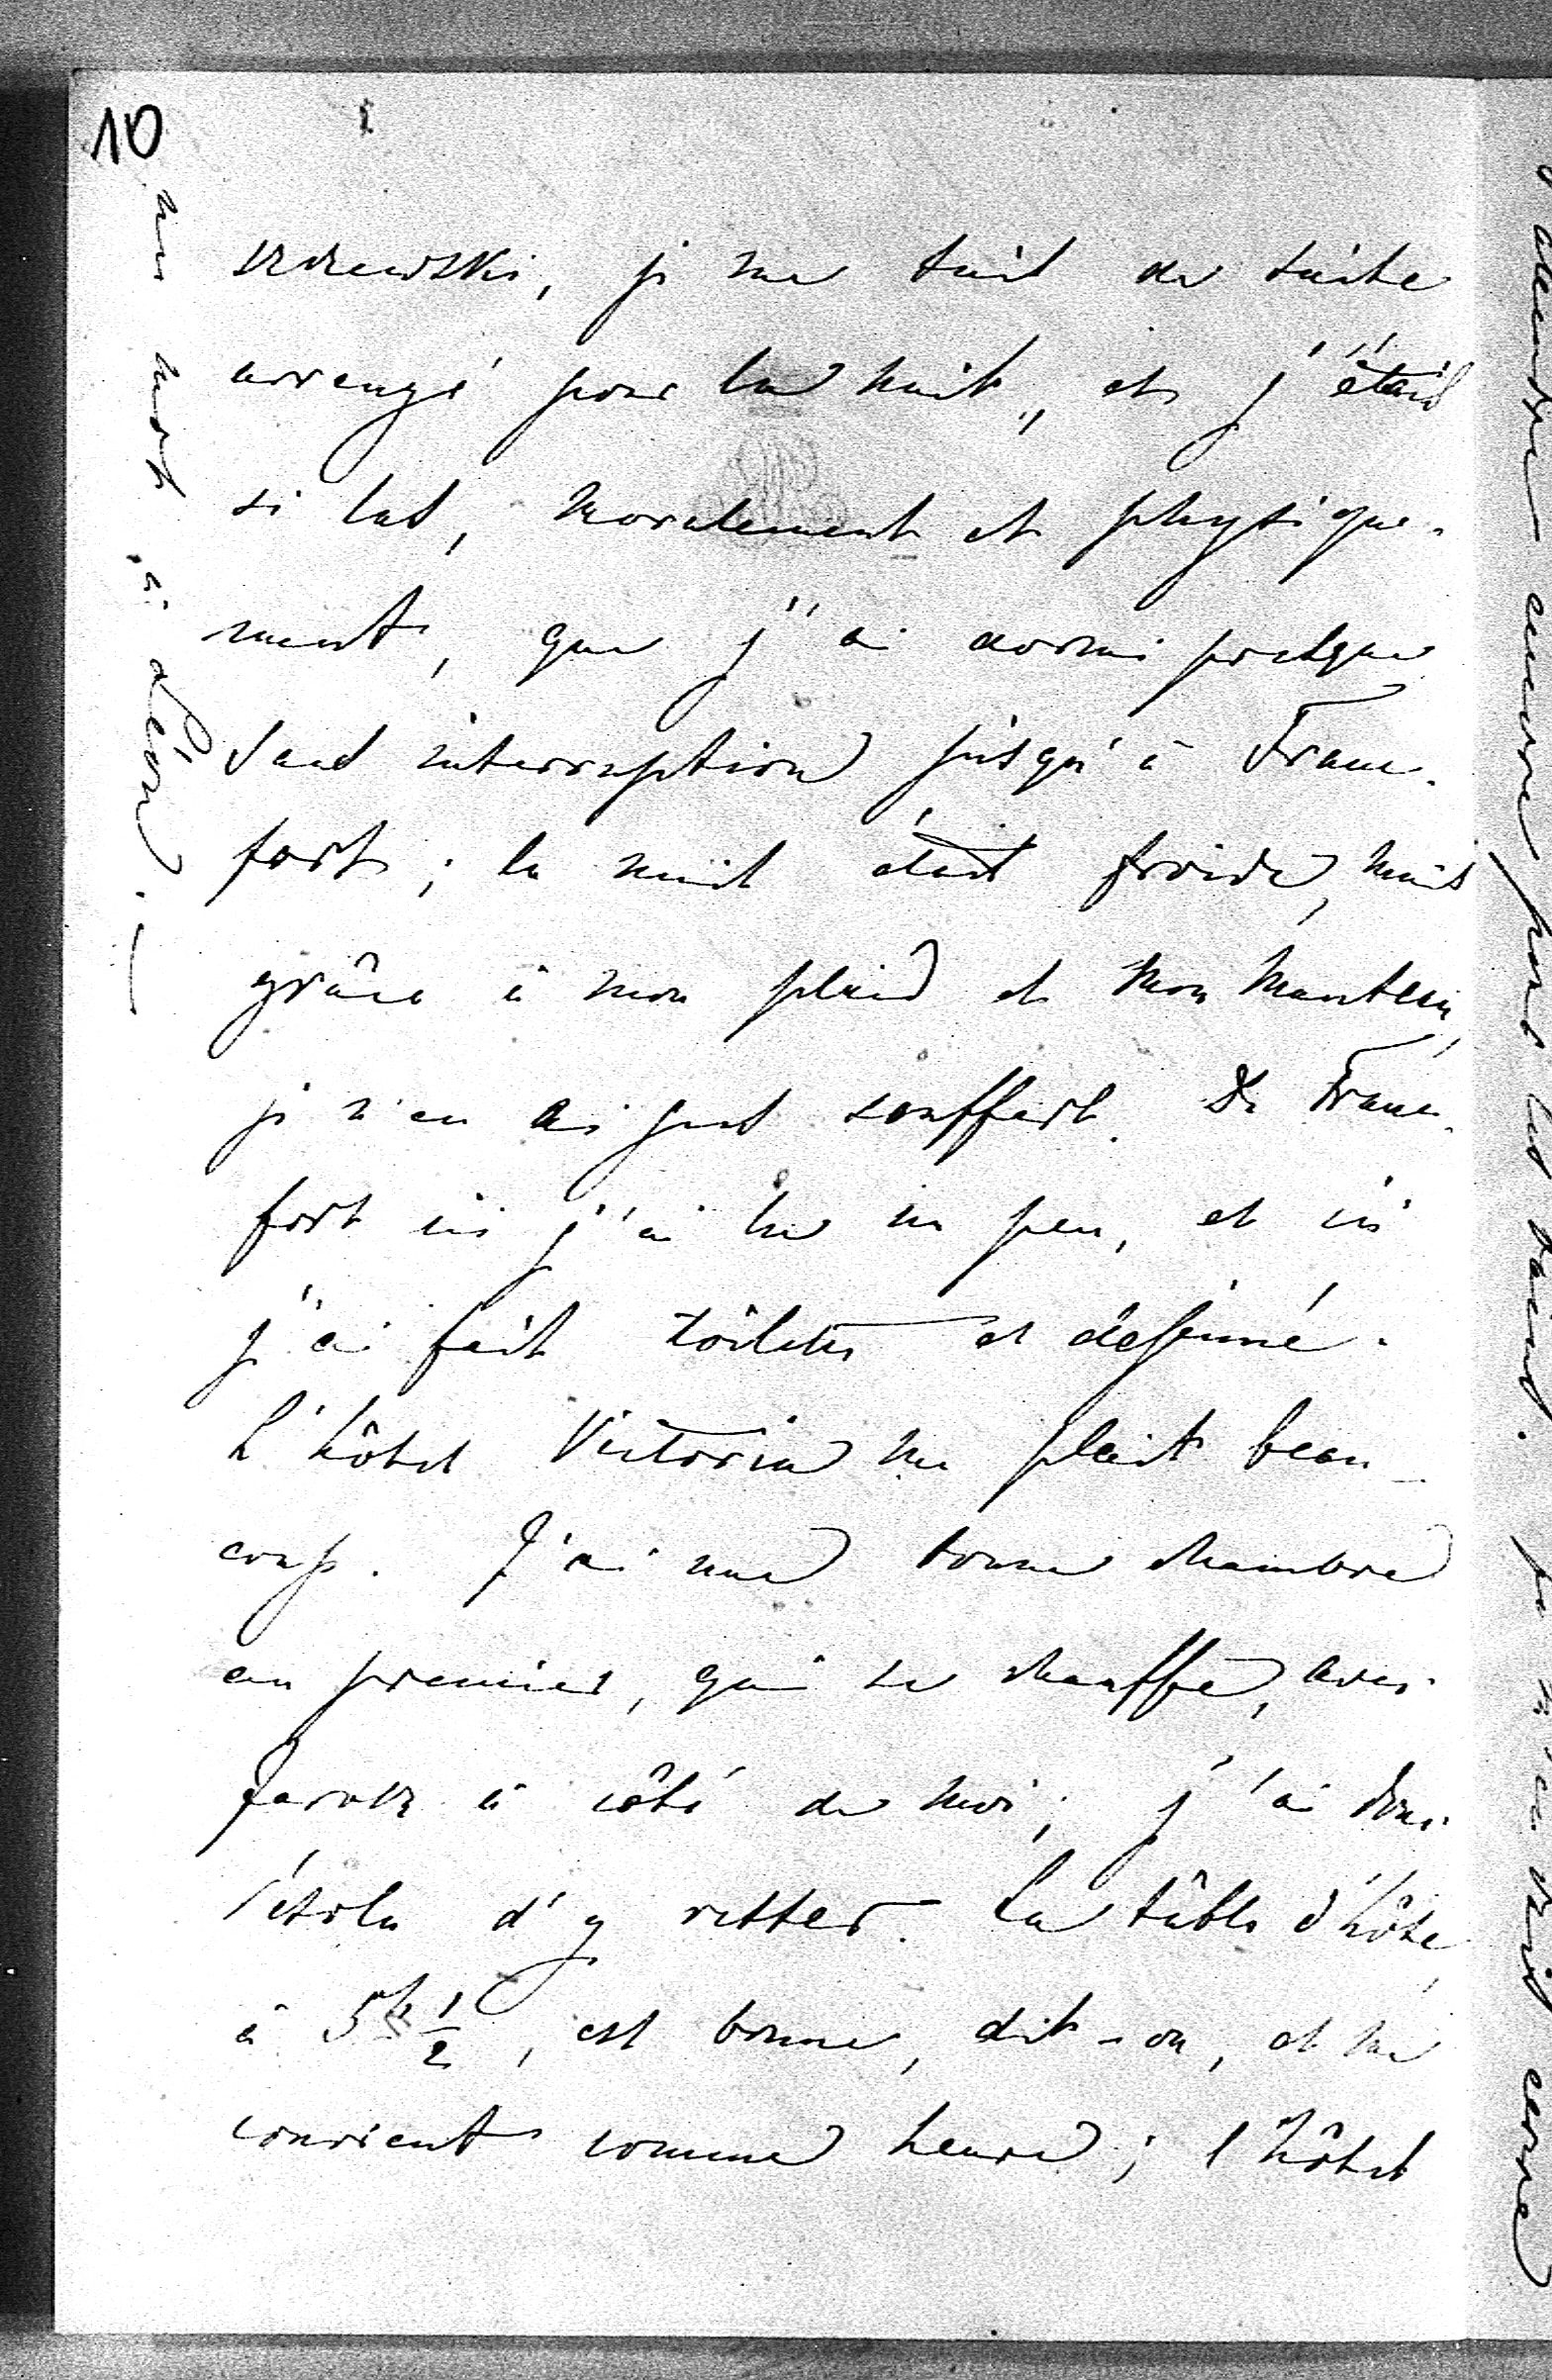 10
szczewski, je me suis de suite
arrangé pour la nuit, et j'étais
si las, moralement et physique-
ment, que j'ai dormi presque
sans interruption jusqu'à Franc-
fort; la nuit était froide, mais
grâce à mon plaid et mon manteau,
je n'en ai pas souffert. De Franc-
fort ici j'ai lu un peu, et ici
j'ai fait toilette et déjeuné.
L'hôtel Victoria me plait beau-
coup. J'ai une bonne chambre
au premier, qui se chauffe, avec
à côté de moi; j'ai donc
résolu d'y rester. La table d'hôte,
à 5h 1/2, est bonne, dit-on, et me
convient comme heure; l'hôtel
un mot à Léon. —